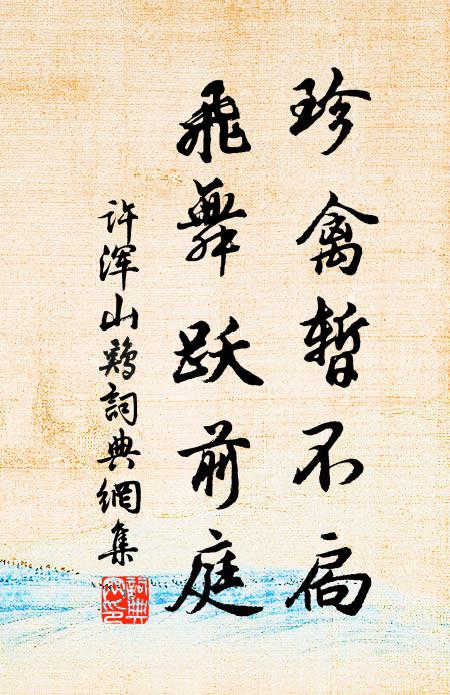 珍禽暂不扃
飞舞跃前庭
许浑山鸡词典網集